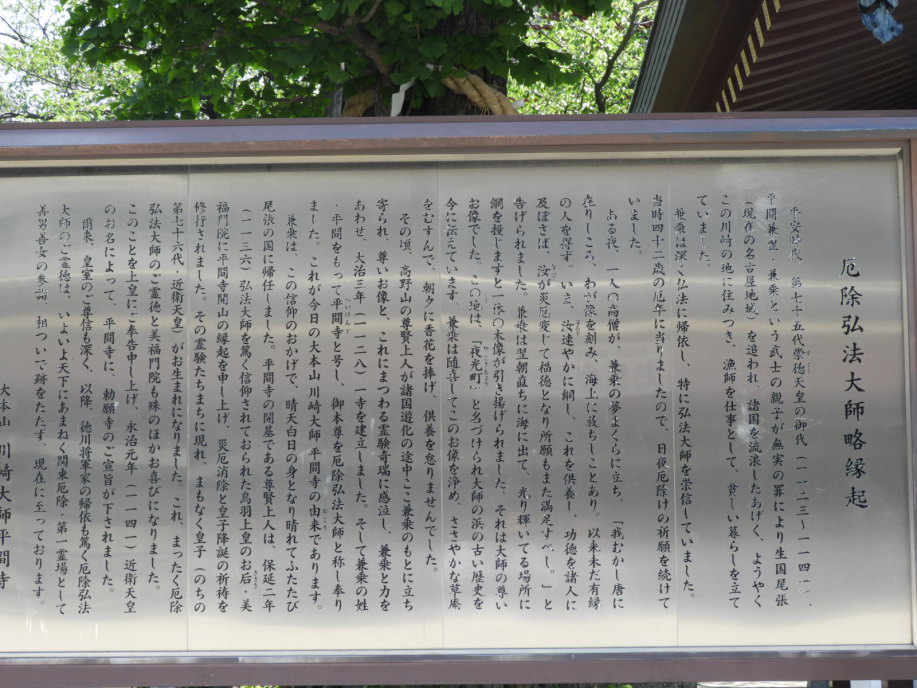 厄除弘法大師略縁起
平安時代、第七十五代崇徳天皇の御代（一一二三～一一四一）、
平間兼豊・兼乗という武士の親子が無実の罪により生国尾張
（現在の名古屋地域）を追われ、諸国を流浪したあげく、ようやく
この川崎の地に住みつき、漁師を仕事として、貧しい暮らしを立て
ていました。
兼乗は深く仏法に帰依し、特に弘法大師を崇信していました。
当時四十二歳の厄年に当りましたので、日夜厄除けの祈願を続けて
いました。
ある夜、一人の高僧が、兼乗の夢まくらに立ち、「我むかし唐に
在りしころ、わが像を刻み、海上に放ちしことあり。以来未だ有縁
の人を得ず。いま、汝速やかに網し、これを供養し、功徳を諸人に
及ぼさば、汝が災厄変じて福徳となり所願もまた満足すべし。」と
告げられました。兼乗は翌朝直ちに海に出て、光り輝いてる場所に
網を投じますと一体の木像が引き揚げられました。それは大師の尊い
お像でした。この地は、「夜光町」と名づけられ大師の浜の古い歴史を
今に伝えています。兼乗は随喜してこのお像を浄め、ささやかな草庵
をむすんで、朝夕に香花を捧げ、供養を怠りませんでした。
その頃、高野山の尊賢上人が諸国遊化の途中ここ兼乗のもとに立ち
寄られ、尊いお像と、これにまつわる霊験奇瑞に感泣し、兼乗と力を
あわせ、大治三年（一一二八）一寺を建立しました。そして兼乗の姓
・平間をもって平間寺と号し、御本尊を厄除弘法大師と称し奉り
ました。これが今日の大本山川崎大師平間寺の由来であります。
兼乗は、この信仰のおかげで、晴天白日の身となり晴れてふたたび
尾張の国に帰任しました。平間寺の開基である尊賢上人は、保延二年
（一一三六）弘法大師を篤く信仰されておられた鳥羽上皇のお后・美
福門院に平間寺開山の縁起を申し上げ、災厄消除と皇子降誕の祈祷を
修行されました。その霊験たちまちに現れ、まもなく皇子（のちの
第七十六代・近衛天皇）がお生まれになりました。これ、まったく厄除
弘法大師のご霊徳と美福門院も殊のほかお喜びになりました。
このことを上皇にご奉告申し上げ、永治元年（一一四一）近衛天皇
のお名によって、平間寺に、勅願寺のご宣旨が下されました。
爾来、皇室のご尊信も深く、以降、徳川将軍家の帰依も篤く厄除弘法
大師のご霊徳は、いよいよ天下にあまねく関東厄除・第一霊場として
善男善女の参詣、相ついで跡をたたず、現在に至っております。
大本山 川崎大師平間寺